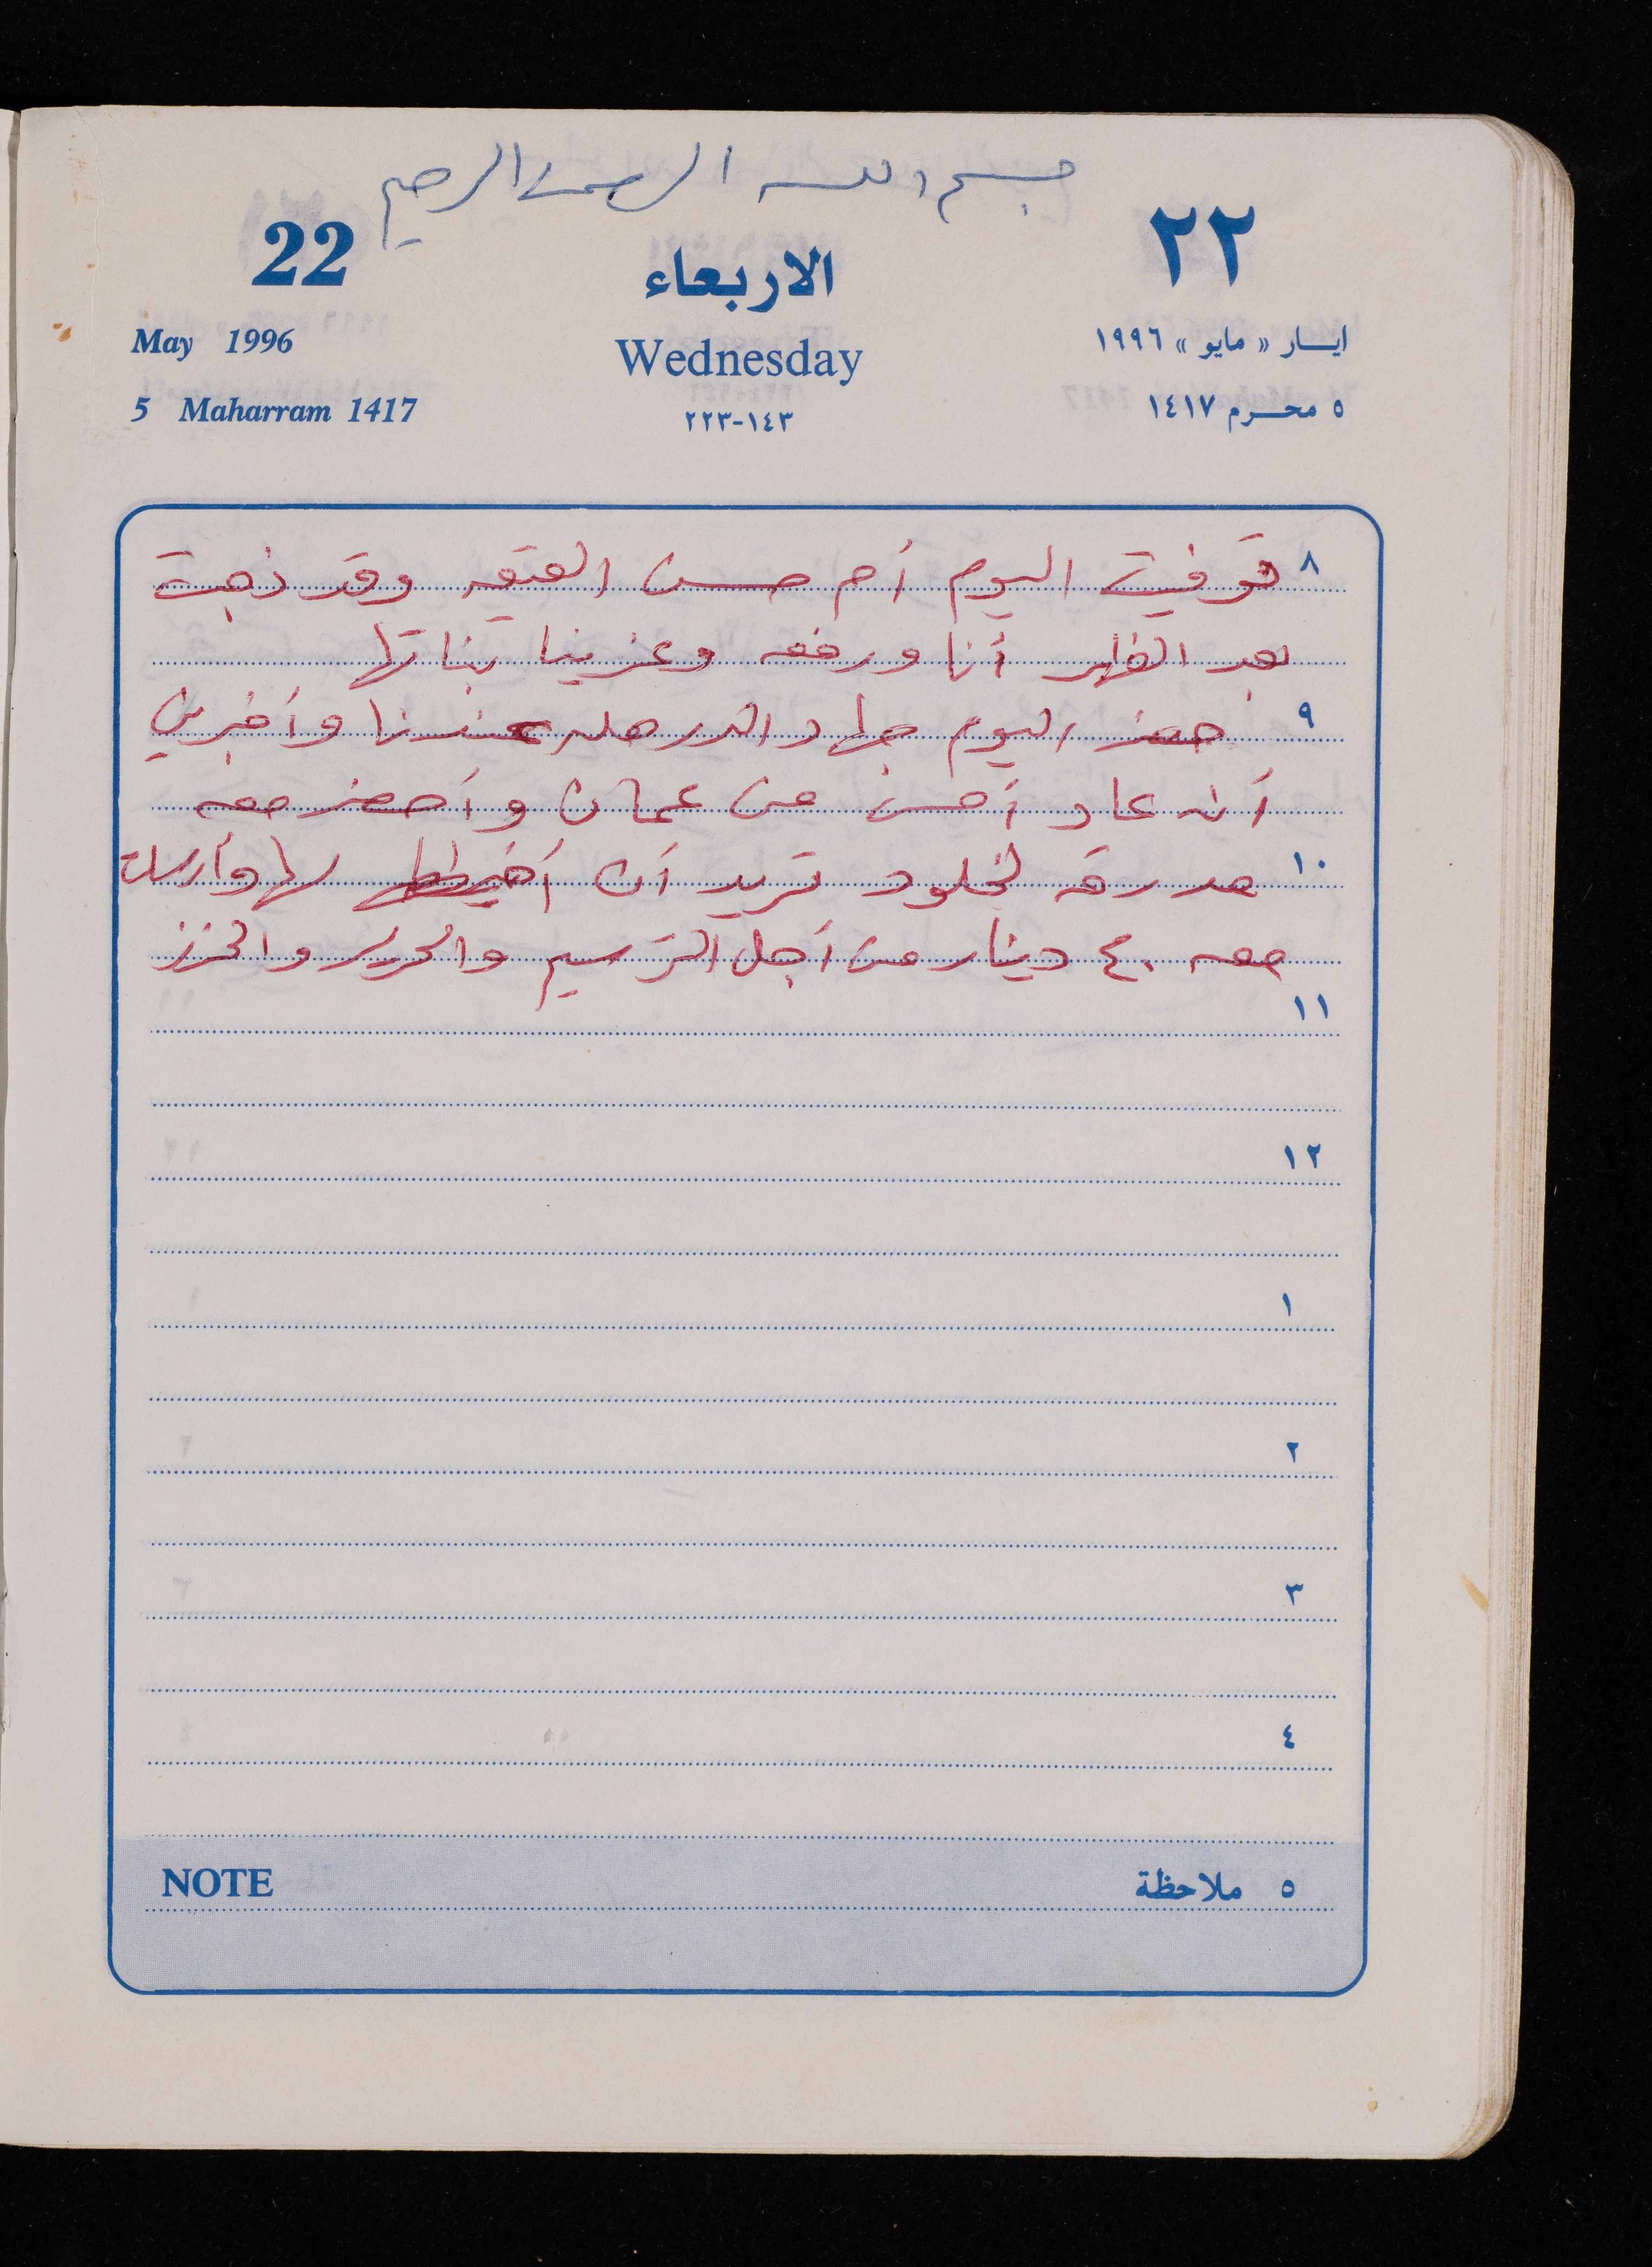 بسم الله الرحمن الرحيم
22
٢٢
الاربعاء
May 1996
Wednesday
ايسار « مايو » ١٩٩٦
5 Maharram 1417
١٤٣-٢٢٣
٥ محرم ١٤١٧
٨ توفيت اليوم أم حسن الفقيه وقد ذهبت
بعد الظهر أنا ورفقه وعزينا بناتها
٩ حضر اليوم جهاد الدرهلي عندنا وأخبرني
أنه عاد أمس من عمان وأحضر معه
١٠ مدرقة لخلود تريد أن أخيطها لها وأرسلت
معه ٤٠ دينار من أجل الترسيم والحرير والخرز
١١
١٢
١
٢
٣
٤
NOTE
٥ ملاحظة